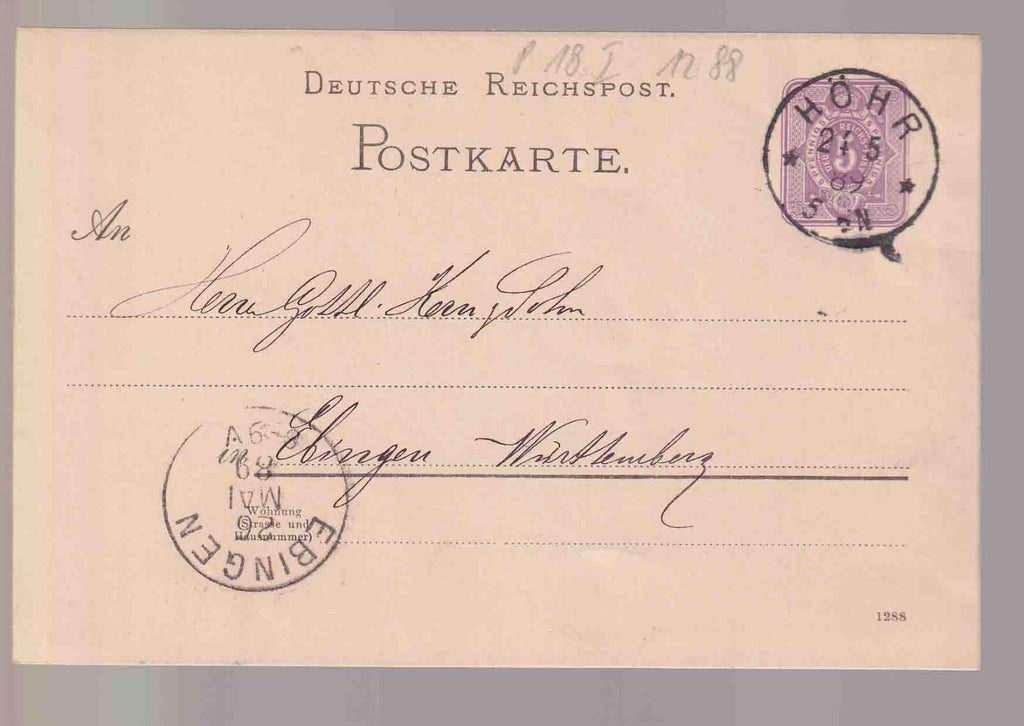 P 18 I 12 88
DEUTSCHE REICHSPOST.
POSTKARTE.
HÖHR
5
89
5 N
An
Herrn Gottl. Kern, Sohn
in Ebingen Württemberg
Wohnung
(Strasse und
Hausnummer)
EBINGEN
26
MAI
89
8-9V
1288